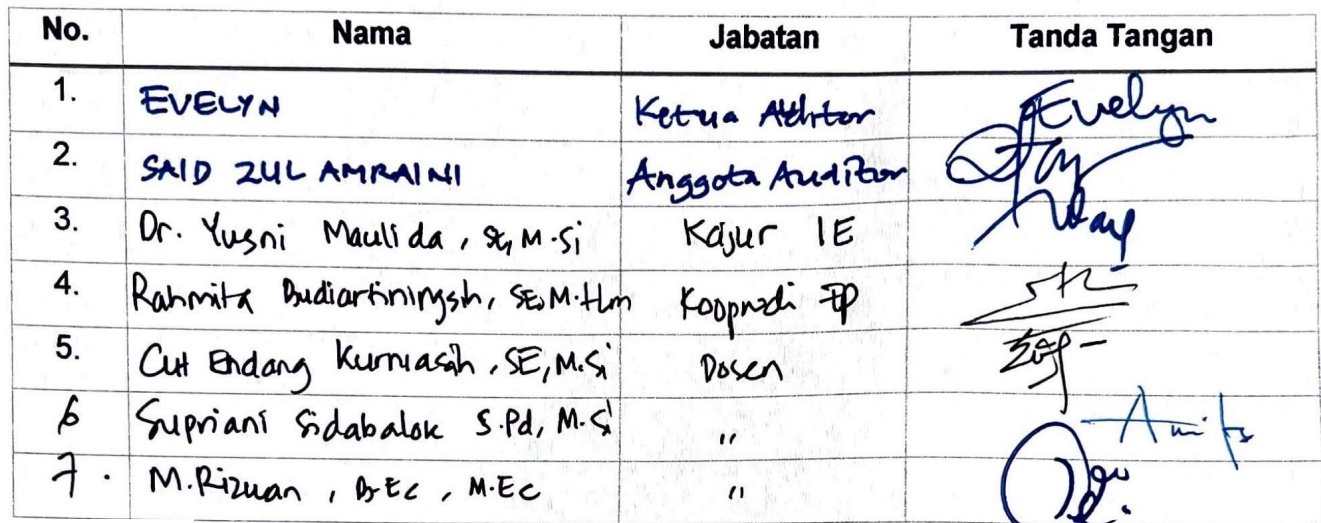 No. Nama Jabatan Tanda Tangan
1. EVELYN Ketua Auditor Evelyn
2. SAID ZUL AMRAINI Anggota Auditor
3. Dr. Yusni Maulida, SE, M.Si Kajur IE
4. Rahmita Budiartiningsih, SE, M.Hum Koorprodi EP
5. Cut Endang Kurniasih, SE, M.Si Dosen
6 Supriani Sidabalok S.Pd, M.Si "
7. M. Rizuan, B.Ec, M.Ec "